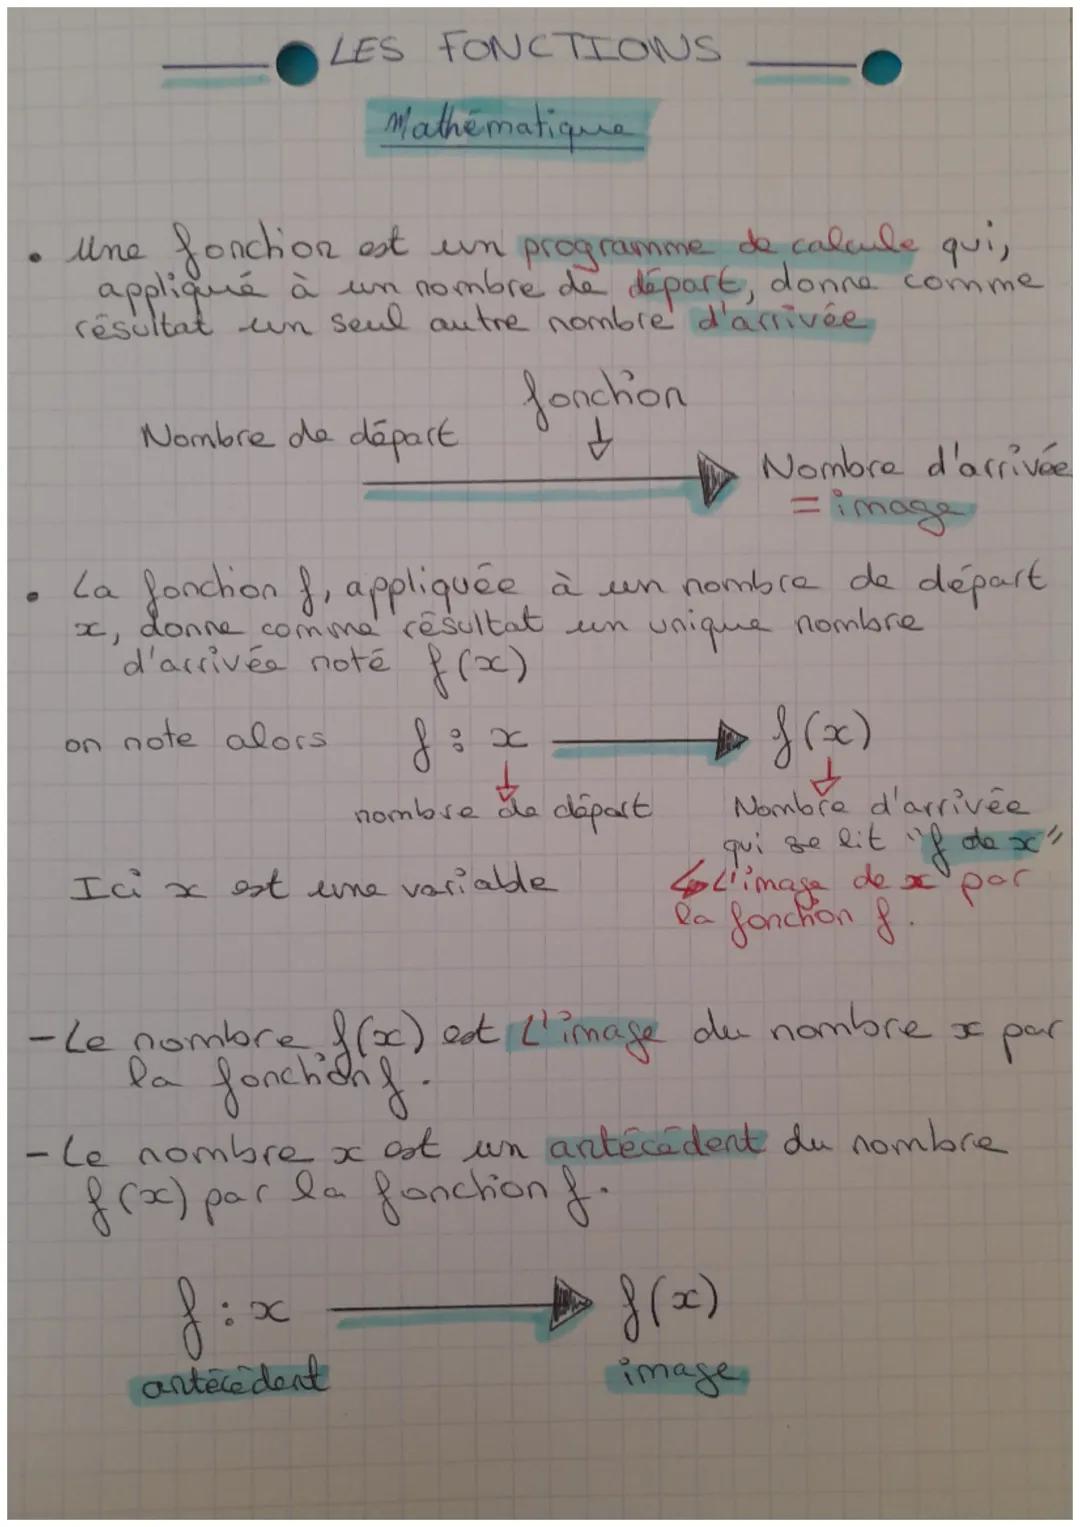 LES FONCTIONS
Mathématique
• Une fonction est un programme de calcule qui,
appliqué à un nombre de départ, donne comme
résultat un seul autre nombre d'arrivée
fonction
Nombre de départ
Nombre d'arrivée
= image
• La fonction f, appliquée à un nombre de départ
x, donne comme résultat un unique nombre
d'arrivée noté f(x)
on note alors f : x → f(x)
nombre de départ Nombre d'arrivée
qui se lit "f de x"
Ici x est une variable
↳ L'image de x par
la fonction f.
- Le nombre f(x) est L'image du nombre x par
la fonction f.
- Le nombre x est un antécédent du nombre
f(x) par la fonction f.
f : x → f(x)
antécédent image